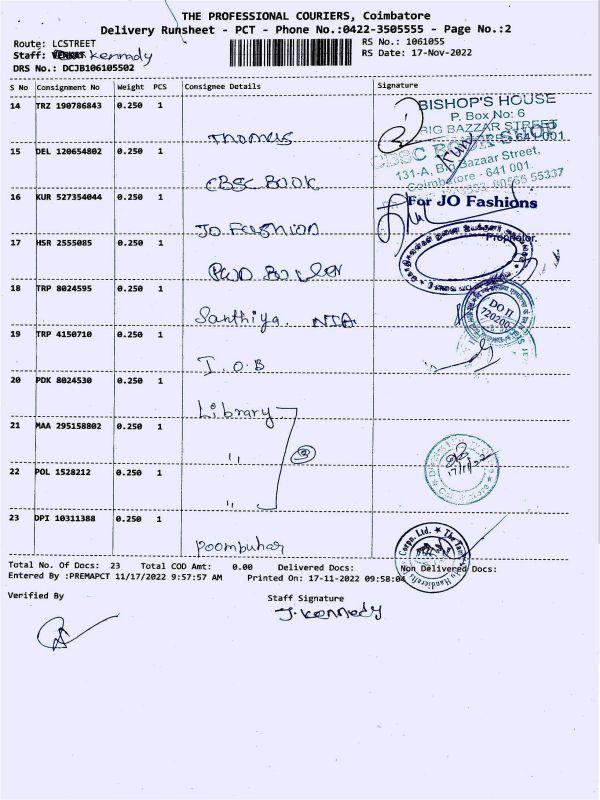 THE PROFESSIONAL COURIERS, Coimbatore
Delivery Runsheet - PCT - Phone No.:0422-3505555 - Page No.:2
Route: LCSTREET
RS No.: 1061055
Staff: kennady
RS Date: 17-Nov-2022
DRS No.: DCJB106105502
S No Consignment No Weight PCS Consignee Details Signature
14 TRZ 190786843 0.250 1
Thomas
BISHOP'S HOUSE
P. Box No: 6
BIG BAZZAR STREET
641 001
15 DEL 120654802 0.250 1
CBSC BOOK
CBSC BOOK SHOP
131-A, Big Bazaar Street,
Coimbatore - 641 001.
55337
16 KUR 527354044 0.250 1
JO Fashion
For JO Fashions
Proprietor.
17 HSR 2555085 0.250 1
18 TRP 8024595 0.250 1
Santhiya. NIA
DO II
720200
19 TRP 4150710 0.250 1
I.O.B
20 PDK 8024530 0.250 1
Library
21 MAA 295158802 0.250 1
"
3
22 POL 1528212 0.250 1
"
23 DPI 10311388 0.250 1
Poompuhar
Total No. Of Docs: 23 Total COD Amt: 0.00 Delivered Docs: Non Delivered Docs:
Entered By :PREMAPCT 11/17/2022 9:57:57 AM Printed On: 17-11-2022 09:58:04
Verified By
Staff Signature
J. Kennedy